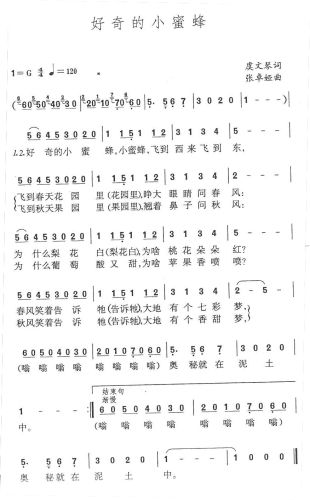 好奇的小蜜蜂
1=G 4/4 ♩=120
虞文琴词
张卓娅曲
(60 50 40 30 20 10 70 60 5. 5 6 7 3 0 2 0 1 - - -)
5 6 4 5 3 0 2 0 1 1 5 1 1 2 5. 5 6 7 3 0 2 0 5 - - -
1.2.好 奇的小 蜜 蜂,小蜜蜂,飞到 西来 飞到 东,
5 6 4 5 3 0 2 0 1 1 5 1 1 2 5. 5 6 7 3 0 2 0 1 - - -
飞到春天花 园 里(花园里),睁大 眼睛 问春 风:
飞到秋天果 园 里(果园里),翘着 鼻子 问秋 风:
5 6 4 5 3 0 2 0 1 1 5 1 1 2 5. 5 6 7 3 0 2 0 5 - - -
为 什么梨 花 白(梨花白),为啥 桃花 朵朵 红?
为 什么葡 萄 酸又甜,为啥 苹果 香喷 喷?
5 6 4 5 3 0 2 0 1 1 5 1 1 2 5. 5 6 7 3 0 2 0 1 2 - 5 -
春风笑着告 诉 牠(告诉牠),大地 有个 七彩 梦,
秋风笑着告 诉 牠(告诉牠),大地 有个 香甜 梦,
60 50 40 30 20 10 70 60 5. 5 6 7 3 0 2 0
(嗡 嗡嗡嗡 嗡 嗡嗡嗡) 奥 秘就 在 泥 土
结束句
渐慢
1 - - - :|| 60 50 40 30 20 10 70 60
中。 (嗡 嗡 嗡 嗡 嗡 嗡 嗡 嗡)
5. 5 6 7 3 0 2 0 1 - - - 1 0 0 0 ||
奥 秘就在 泥 土 中。